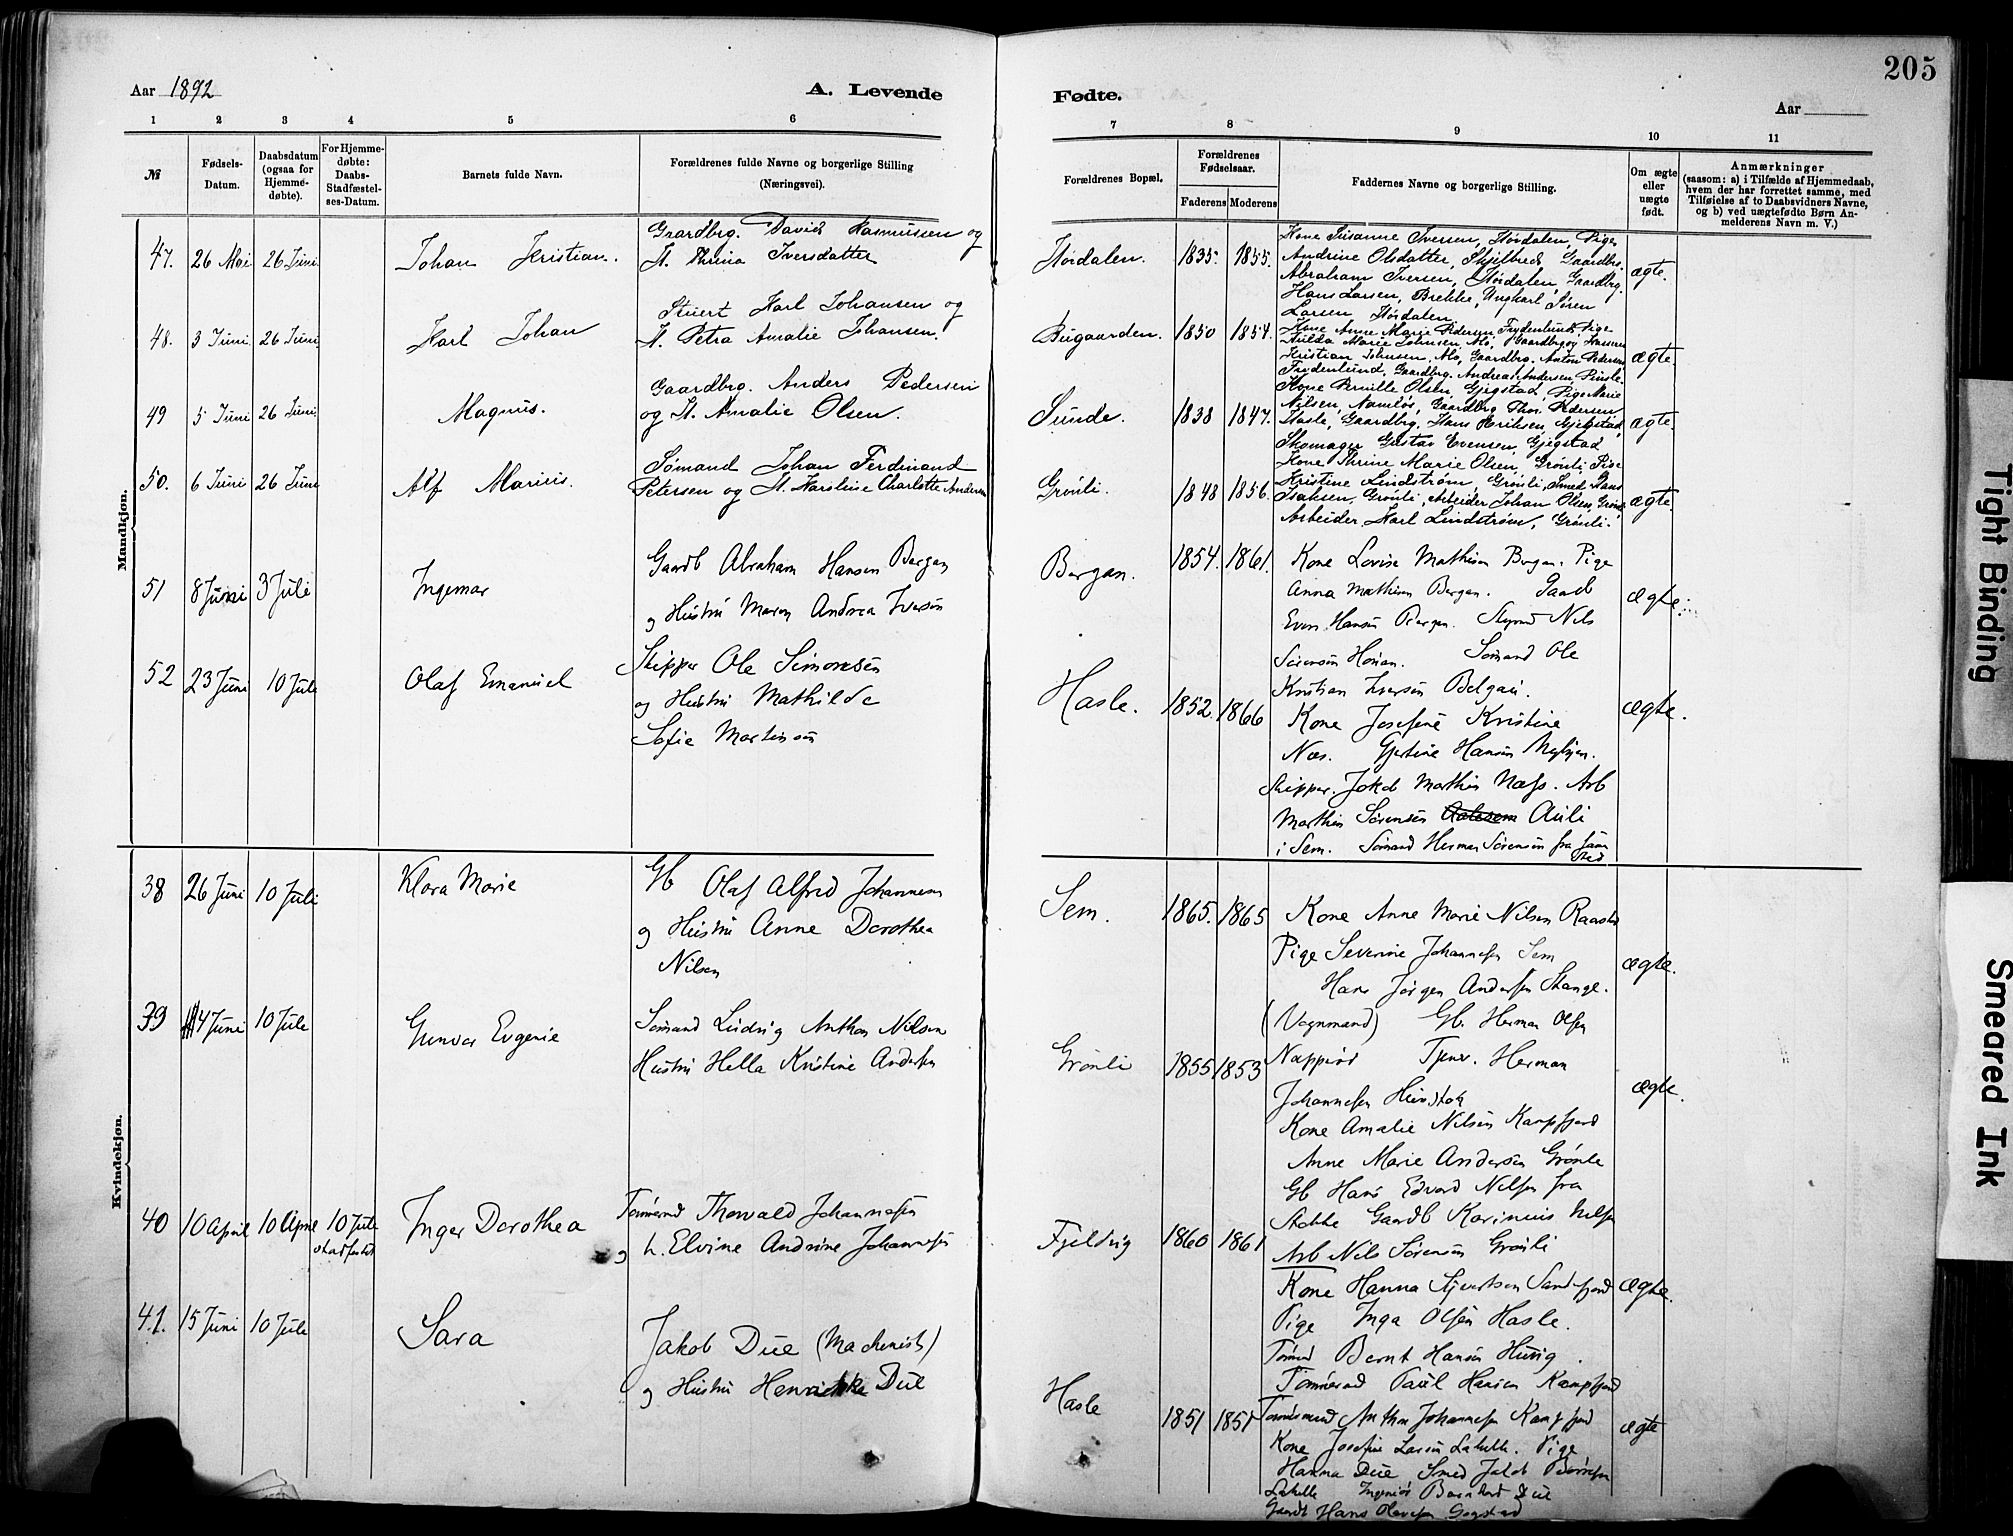 205
Aar 1892
A. Levende
Fødte.
Aar
1 2 3 4 5 6
7 8 9 10 11
№
Fødsels-
Datum.
Daabsdatum
(ogsaa for
Hjemme-
døbte).
For Hjemme-
døbte:
Daabs-
Stadfæstel-
ses-Datum.
Barnets fulde Navn.
Forældrenes fulde Navne og borgerlige Stilling
(Næringsvei).
Forældrenes Bopæl.
Forældrenes
Fødselsaar.
Faderens Moderens
Faddernes Navne og borgerlige Stilling.
Om ægte
eller
uægte
født.
Anmærkninger
(saasom: a) i Tilfælde af Hjemmedaab,
hvem der har forrettet samme, med
Tilføielse af to Daabsvidners Navne,
og b) ved uægtefødte Børn An-
melderens Navn m. V.)
Mandkjøn.
47. 26 Mai 26 Juni. Johan Kristian.
Gaardbrg. David Rasmussen og
H. Thrina Iversdatter
Høidalen. 1835. 1855.
Kone Susanne Iversen, Høidalen, Pige
Andrine Olsdatter, Skjelbred, Gaardbr.
Abraham Iversen, Høidalen, Gaardbrg.
Hans Larsen, Brekke, Ungkarl Søren
Larsen Høidalen.
ægte.
48. 3 Juni. 26 Juni. Karl Johan
Karl Johansen og
H. Petra Amalie Johansen.
Bugaarden. 1850 1854.
Kone Anne Marie Pedersen Frydenlund, Pige
Hulda Marie Johnsen, Mo, Gaardbrg.
Kristian Johnsen, Mo, Gaardbrg. Anton Pedersen
Frydenlund, Gaardbrg. Andreas Andersen,
ægte.
49 5 Juni 26 Juni. Magnus.
Gaardbrg. Anders Pedersen
og H. Amalie Olsen.
Sunde. 1838 1847.
Kone Pernille Olsen, Gjegstad, Pige Marie
Nilsen, Namløs, Gaardbrg Thor Pedersen
Hasle, Gaardbrg. Hans Eriksen, Gjegstad,
Skomager Gustav Evensen, Gjegstad
ægte.
50. 6 Juni 26 Juni Alf Marius.
Sømand Johan Ferdinand
Petersen og H. Karoline Charlotte Andersen
Grønli. 1848 1856.
Kone Thrine Marie Olsen, Grønli, Pige
Kristine Lindstrøm, Grønli, Smed Hans
Isaksen, Grønli, Arbeider Johan Olsen, Grønli
Arbeider Karl Lindstrøm, Grønli.
ægte.
51 8 Juni 3 Juli Ingemar
Gaardb Abraham Hansen Bergan
og Hustru Maren Andrea Iversen
Bergan. 1854. 1861.
Kone Lovise Mathisen Bergan. Pige
Anna Mathisen Bergan. Gaardb
Even Hansen Bergan. Nils
Sørensen Sømand Ole
Kristian Iversen
ægte.
52 23 Juni 10 Juli Olaf Emanuel
Skipper Ole Simonsen
og Hustru Mathilde
Sofie Martinsen
Hasle. 1852. 1866
Kone Josefine Kristine
Næs. Gjertine Hansen
Skipper. Jakob Mathis Næss. Arb
Mathis Sørensen Auli
i Sem. Sømand Herman Sørensen fra samme
sted
ægte.
Kvindekjøn.
38 26 Juni 10 Juli Klara Marie
Gb Olaf Alfred Johannesen
og Hustru Anne Dorothea
Nilsen
Sem. 1865. 1865
Kone Anne Marie Nilsen Raastad
Pige Severine Johannesen Sem
Hans Jørgen Andersen Stange.
(Vognmand) Gb. Herman Olsen
Tjener. Herman
Johannesen
ægte.
39 4 Juni 10 Jule Gunvor Evgenie
Sømand Ludvig Anthon Nilsen
Hustru Hella Kristine Andersen
Grønli 1855 1853
Kone Amalie Nilsen Kampfjord
Anne Marie Andersen Grønle
Gb Hans Edvard Nilsen fra
Stokke Gaardb Karinius Nilsen
Arb Nils Sørensen Grønli
ægte.
40 10 April 10 Apre 10 Jule
stadfæstet
Inger Dorothea
Tømmermd Thorvald Johannesen
og h. Elvine Andrine Johannesen
Fjeldvig 1860 1861
Kone Hanna Sjuertsen Sandefjord
Pige Inga Olsen Hasle.
Tømmd Bernt Hansen
Tømmermd Paul Hansen Kampfjord
Tømmermd Anthon Johannesen Kampfjord
ægte.
41. 15 Juni 10 Jule Sara
Jakob Due (Machinist)
og Hustru Henrikke Due
Hasle 1851 1851
Kone Josefine Larsen Lahelle. Pige
Hanna Due Smed Jakob
Lahelle Ingeniør Bernhard Due
Gaardb Hans Gogstad
ægte
Tight Binding
Smeared Ink